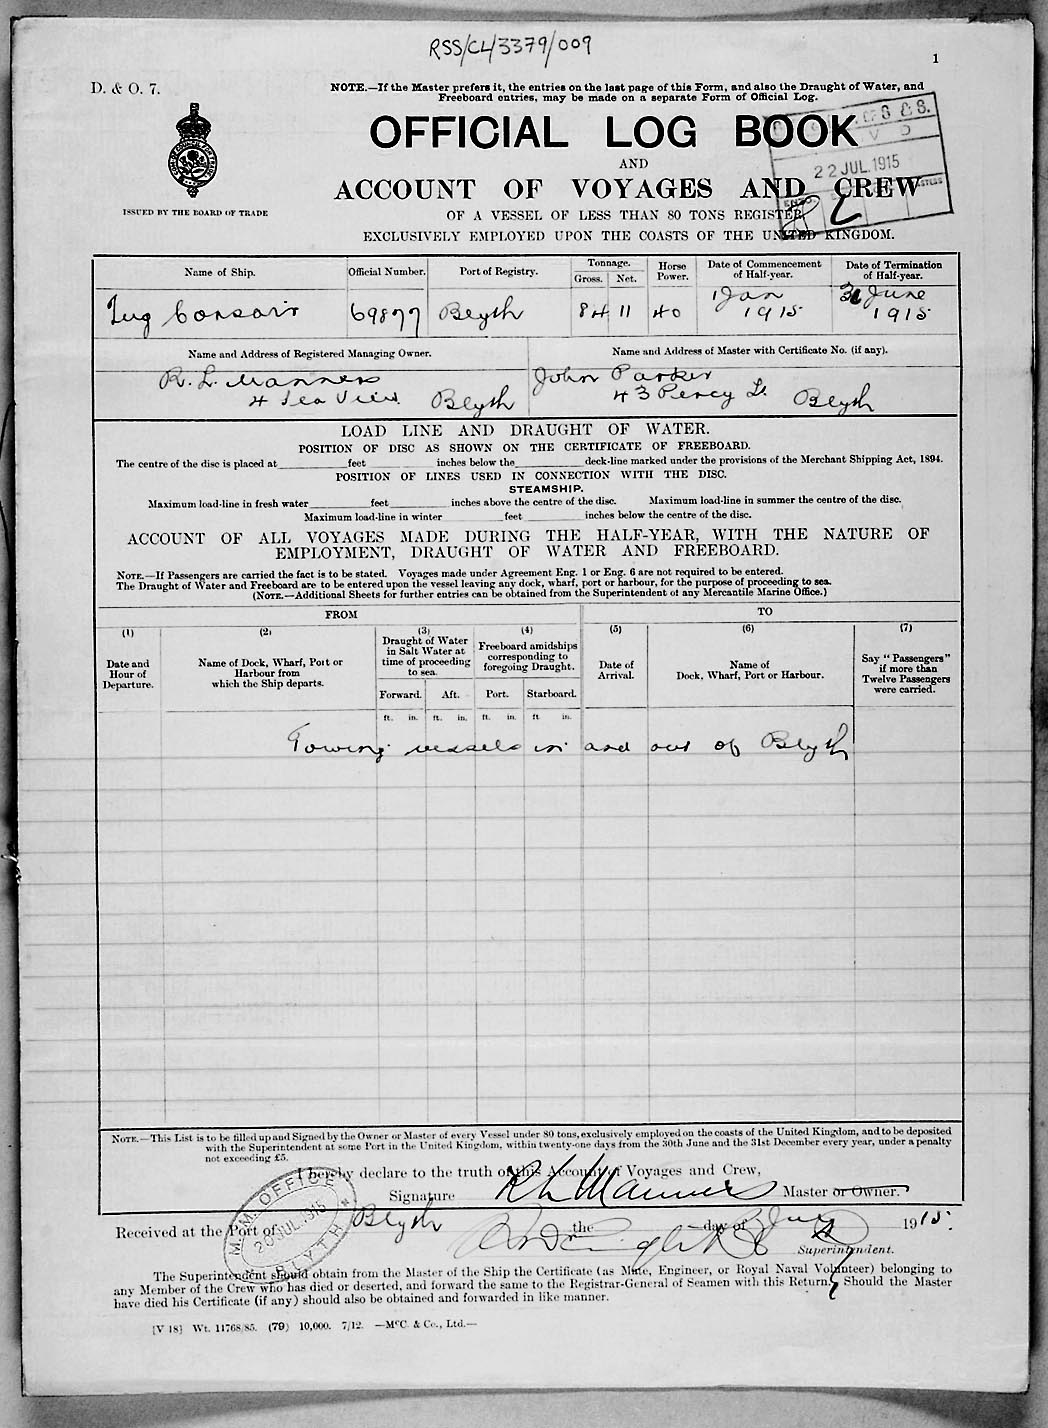 RSS/CL/3379/009
1
D. & O. 7.
NOTE.—If the Master prefers it, the entries on the last page of this Form, and also the Draught of Water, and
Freeboard entries, may be made on a separate Form of Official Log.
OFFICIAL LOG BOOK
AND
22 JUL. 1915
ACCOUNT OF VOYAGES AND CREW
ISSUED BY THE BOARD OF TRADE
OF A VESSEL OF LESS THAN 80 TONS REGISTER
EXCLUSIVELY EMPLOYED UPON THE COASTS OF THE UNITED KINGDOM.
Name of Ship. Official Number. Port of Registry. Tonnage. Gross. Net. Horse Power. Date of Commencement of Half-year. Date of Termination of Half-year.
Tug Consair 69877 Blyth 84 11 40 1 Jan 1915 June 1915
Name and Address of Registered Managing Owner. Name and Address of Master with Certificate No. (if any).
R. L. Manners John Parker
4 Sea View Blyth 43 Percy St. Blyth
LOAD LINE AND DRAUGHT OF WATER.
POSITION OF DISC AS SHOWN ON THE CERTIFICATE OF FREEBOARD.
The centre of the disc is placed at feet inches below the deck-line marked under the provisions of the Merchant Shipping Act, 1894.
POSITION OF LINES USED IN CONNECTION WITH THE DISC.
STEAMSHIP.
Maximum load-line in fresh water feet inches above the centre of the disc. Maximum load-line in summer the centre of the disc.
Maximum load-line in winter feet inches below the centre of the disc.
ACCOUNT OF ALL VOYAGES MADE DURING THE HALF-YEAR, WITH THE NATURE OF
EMPLOYMENT, DRAUGHT OF WATER AND FREEBOARD.
NOTE.—If Passengers are carried the fact is to be stated. Voyages made under Agreement Eng. 1 or Eng. 6 are not required to be entered.
The Draught of Water and Freeboard are to be entered upon the vessel leaving any dock, wharf, port or harbour, for the purpose of proceeding to sea.
(NOTE.—Additional Sheets for further entries can be obtained from the Superintendent of any Mercantile Marine Office.)
FROM TO
(1) (2) (3) (4) (5) (6) (7)
Date and Hour of Departure.
Name of Dock, Wharf, Port or Harbour from which the Ship departs.
Draught of Water in Salt Water at time of proceeding to sea.
Freeboard amidships corresponding to foregoing Draught.
Date of Arrival.
Name of Dock, Wharf, Port or Harbour.
Say "Passengers" if more than Twelve Passengers were carried.
Forward. Aft. Port. Starboard.
ft. in. ft. in. ft. in. ft in.
Towing vessels in and out of Blyth
NOTE.—This List is to be filled up and Signed by the Owner or Master of every Vessel under 80 tons, exclusively employed on the coasts of the United Kingdom, and to be deposited
with the Superintendent at some Port in the United Kingdom, within twenty-one days from the 30th June and the 31st December every year, under a penalty
not exceeding £5.
I hereby declare to the truth of this Account of Voyages and Crew,
Signature R L Manners Master or Owner.
M.M. OFFICE 20 JUL. 1915 BLYTH
Received at the Port of Blyth the day of 1915.
Superintendent.
The Superintendent should obtain from the Master of the Ship the Certificate (as Mate, Engineer, or Royal Naval Volunteer) belonging to
any Member of the Crew who has died or deserted, and forward the same to the Registrar-General of Seamen with this Return. Should the Master
have died his Certificate (if any) should also be obtained and forwarded in like manner.
[V 18] Wt. 11768/85. (79) 10,000. 7/12. —McC. & Co., Ltd.—